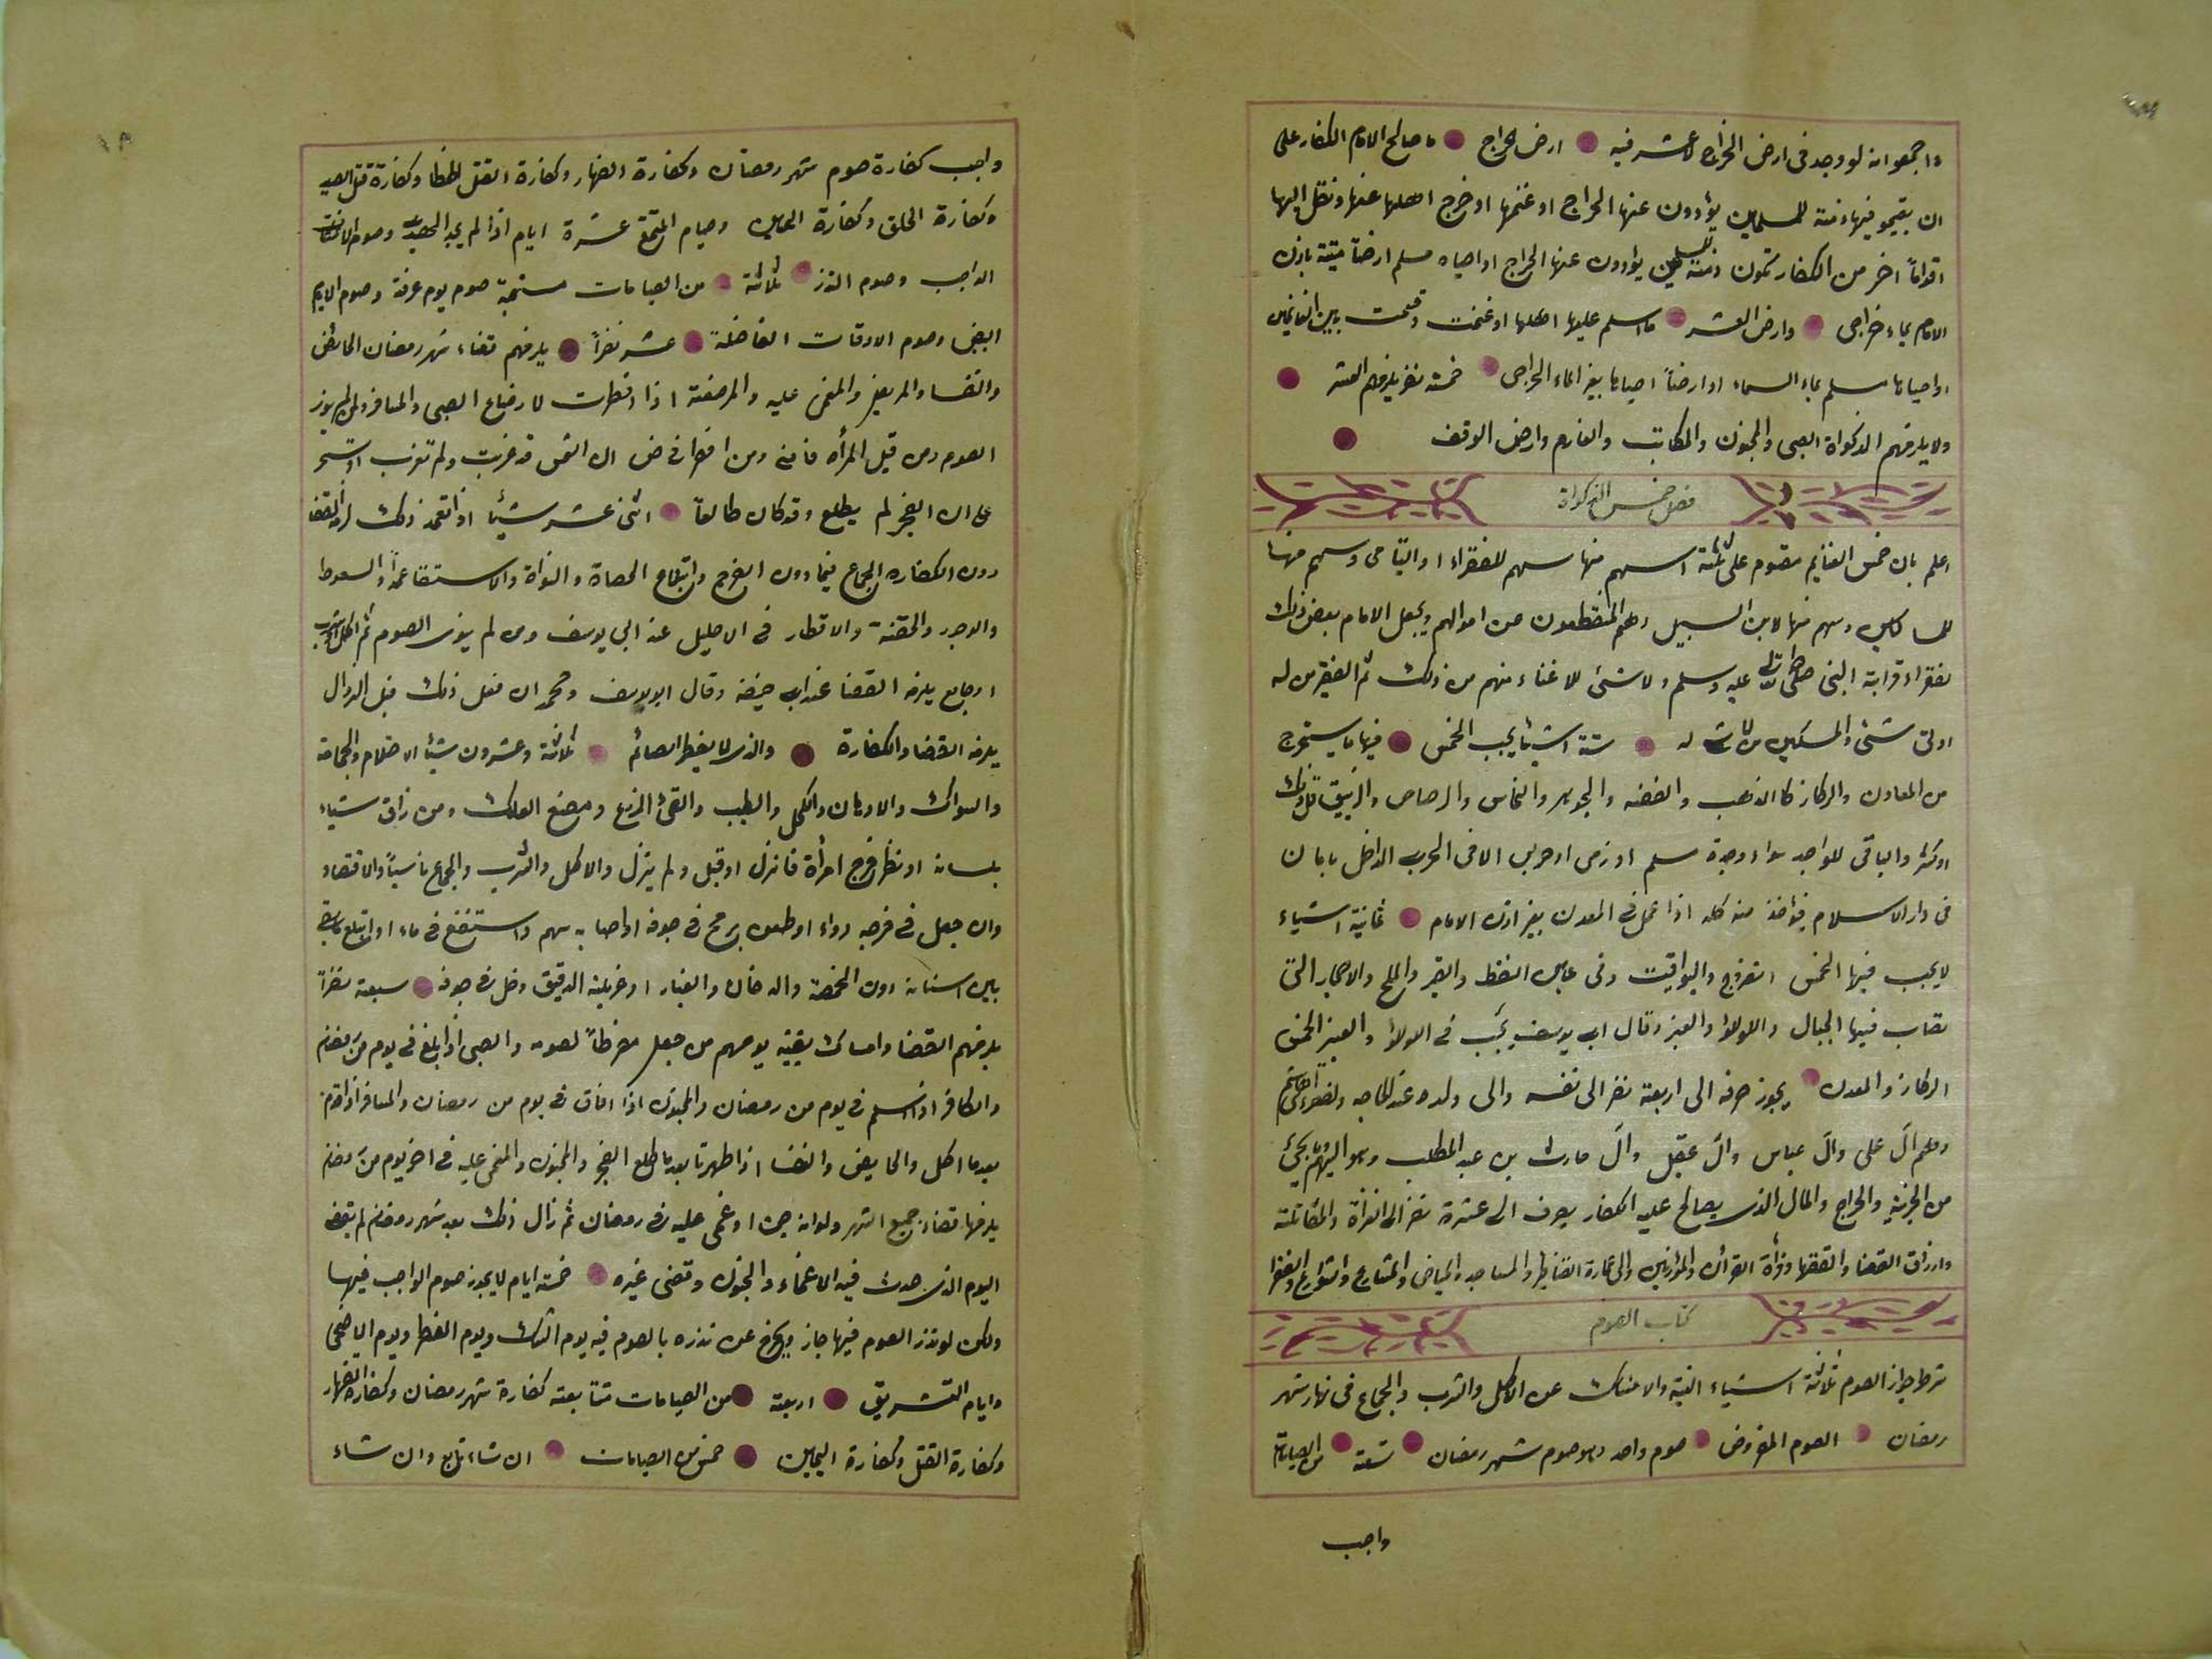 واجمعوا انه لو وجد فى ارض الخراج لا عشر فيه ارض الخراج ما صالح الامام الكفار على
ان يقيمو فيها ذمة للمسلمين يؤدون عنها الخراج او غنمها او خرج اهلها عنها ونقل اليها
اقواماً اخر من الكفار تكون ذمة للمسلمين يؤدون عنها الخراج او احياه مسلم ارضاً ميتة باذن
الامام بماء خراجى وارض العشر ما اسلم عليها اهلها او غنمت وقسمت بين الغانمين
او احياها مسلم بماء السماء او ارضاً احياها بغير الماء الخراجى خمسة نفر يلزمهم العشر
ولا يلزمهم الذكواة الصبى والمجنون والمكاتب والغارم وارض الوقف
فصل خمس الذكواة
اعلم بان خمس الغنايم مقسوم على ثلثة اسهم منها سهم للفقراء او اليتامى وسهم منها
للمساكين وسهم منها لابن السبيل وهم المنقطعون من اموالهم ويجعل الامام بعض ذلك
لفقراء قرابة النبى صلى الله عليه وسلم ولا شئ للاغناء منهم من ذلك ثم الفقير من له
ادنى شئ والمسكين من لا شئ له ستة اشيا يجب الخمس فيها ما يستخرج
من المعادن والركاز كالذهب والفضه والجوهر والنحاس والرصاص والزيبق قل ذلك
او كثر والباقى للواجد سواء وجده مسلم او زمى او حربى الا فى الحرب الداخل بامان
فى دار الاسلام فيؤخذ منه كله اذا عمل فى المعدن بغير اذن الامام ثمانية اشياء
لا يجب فيها الخمس الفيروزج واليواقيت وفى عين النفط والقير والملح والاحجار التى
تصاب فيها الجبال واللؤلؤ والعنبر وقال ابى يوسف يجب فى الؤلؤ والعنبر الخمس
الركاز والمعدن يجوز صرفه الى اربعة نفر الى نفسه والى ولده عند الحاجه ولفقراء بنى هاشم
وهم آل على وآل عباس وآل عقيل وآل حارث بن عبد المطلب ومواليهم وما يجئ
من الجزية والخراج والمال الذى يصالح عليه الكفار يصرف الى عشرة نفر الى الغزاة والمقاتلة
وارزاق القضا والفقها وقراة القرأن والمؤذنين والى عمارة القناطر والمساجد والحياض والمشارع والشوارع والفقرا
كتاب الصوم
شرط جواز الصوم ثلاثة اشياء النية والامساك عن الاكل والشرب والجماع فى نهار شهر
رمضان الصوم المفروض صوم واحد وهو صوم شهر رمضان تسعة من الصيامات
واجب
واجب كفارة صوم شهر رمضان وكفارة الظهار وكفارة القتل الخطا وكفارة قتل الصيد
وكفارة الحلق وكفارة اليمين وصيام المتمتع عشرة ايام اذا لم يجد الهدى وصوم الاعتكاف
الواجب وصوم النذر ثلاثة من الصيامات مستحبة صوم يوم عرفة وصوم الايام
البيض وصوم الاوقات الفاضلة عشر نفراً يلزمهم قضاء شهر رمضان الحائض
والنفسا والمريض والمغمى عليه والمرضعة اذا افطرت لارضاع الصبى والمسافر ولم ينو
الصوم ومن قبل المرأه فامنى ومن افطر فى ظن ان الشمس قد غربت ولم تغرب او تسحر
على ان الفجر لم يطلع وقد كان طالعاً اثنى عشر شيئا اذا تعمد ذلك لزمه القضا
دون الكفاره الجماع فيما دون الفرج وابتلاع الحصاة والنواة والاستقا عمداً والسعوط
والوجور والحقنة والاقطار فى الاحليل عند ابى يوسف ومن لم ينوى الصوم ثم اكل او شرب
او جامع يلزمه القضا عند ابى حنيفه وقال ابو يوسف ومحمد ان فعل ذلك قبل الزوال
يلزمه القضا والكفارة والذى لا يفطر الصائم ثلاثة وعشرون شيئا الاحتلام والحجامة
والسواك والادهان والكحل والطيب والقئ الزرع ومضغ العلك ومن ذاق شياء
بلسانه او نظر فرج امرأة فانزل او قبل ولم ينزل والاكل والشرب والجماع ناسياً والافتصاد
وان جعل فى فرجه دواء او طعن برمح فى جوفه او اصابه سهم واستنقع فى ماء او ابتلع ما بقى
بين اسنانه دون الحمصة والدخان والغبار او غربلة الدقيق دخل فى جوفه سبعة نفراً
يلزمهم القضا وامساك بقية يومهم من جعل مفرطاً لصومه والصبى اذا بلغ فى يوم من رمضان
والكافر اذا اسلم فى يوم من رمضان والمجنون اذا افاق فى يوم من رمضان والمسافر اذا قدم
بعدما اكل والحايض والنفسا اذا طهرتا بعد ما طلع الفجر والمجنون والمغمى عليه فى اخر يوم من رمضان
يلزمها قضاء جميع الشهر ولو انه جن او غمى عليه فى رمضان ثم زال ذلك بعد شهر رمضان لم يقض
اليوم الذى حدث فيه الاغماء والجنون وقضى غيره خمسة ايام لا يجوز صوم الواجب فيها
ولكن لو نذر الصوم فيها جاز ويخرج عن نذره بالصوم فيه يوم الشك ويوم الفطر ويوم الاضحى
وايام التشريق اربعة من الصيامات متتابعة كفارة شهر رمضان وكفارة الظهار
وكفارة القتل وكفارة اليمين خمس من الصيامات ان شاء تابع وان شاء